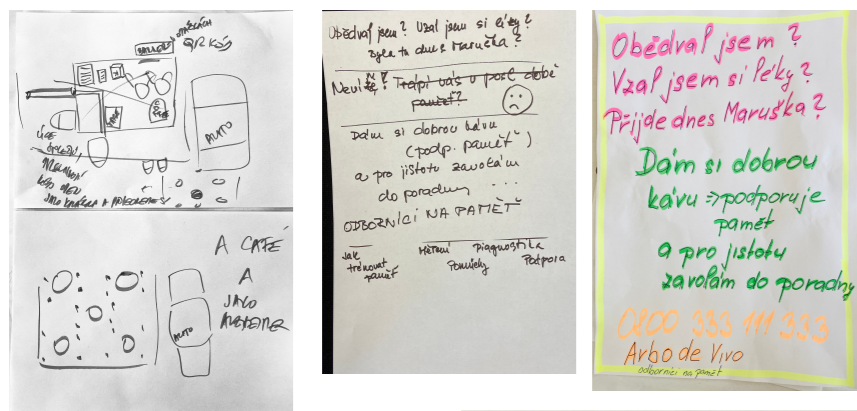 QR KÓD
AUTO
A CAFÉ
A
JAKO
ALZHEIMER
AUTO
Obědval jsem? Vzal jsem si léky?
dnes Maruška?
Trápí vás v posl. době
paměť?
Dám si dobrou kávu
(podp. paměť)
a pro jistotu zavolám
do poradny ...
ODBORNÍCI NA PAMĚŤ
Jak
trénovat
paměť
Měření
Pomůcky
Diagnostika
Podpora
Obědval jsem?
Vzal jsem si léky?
Přijde dnes Maruška?
Dám si dobrou
kávu => podporuje
paměť
a pro jistotu
zavolám do poradny
0800 333 111 333
Arbo de Vivo
odborníci na paměť